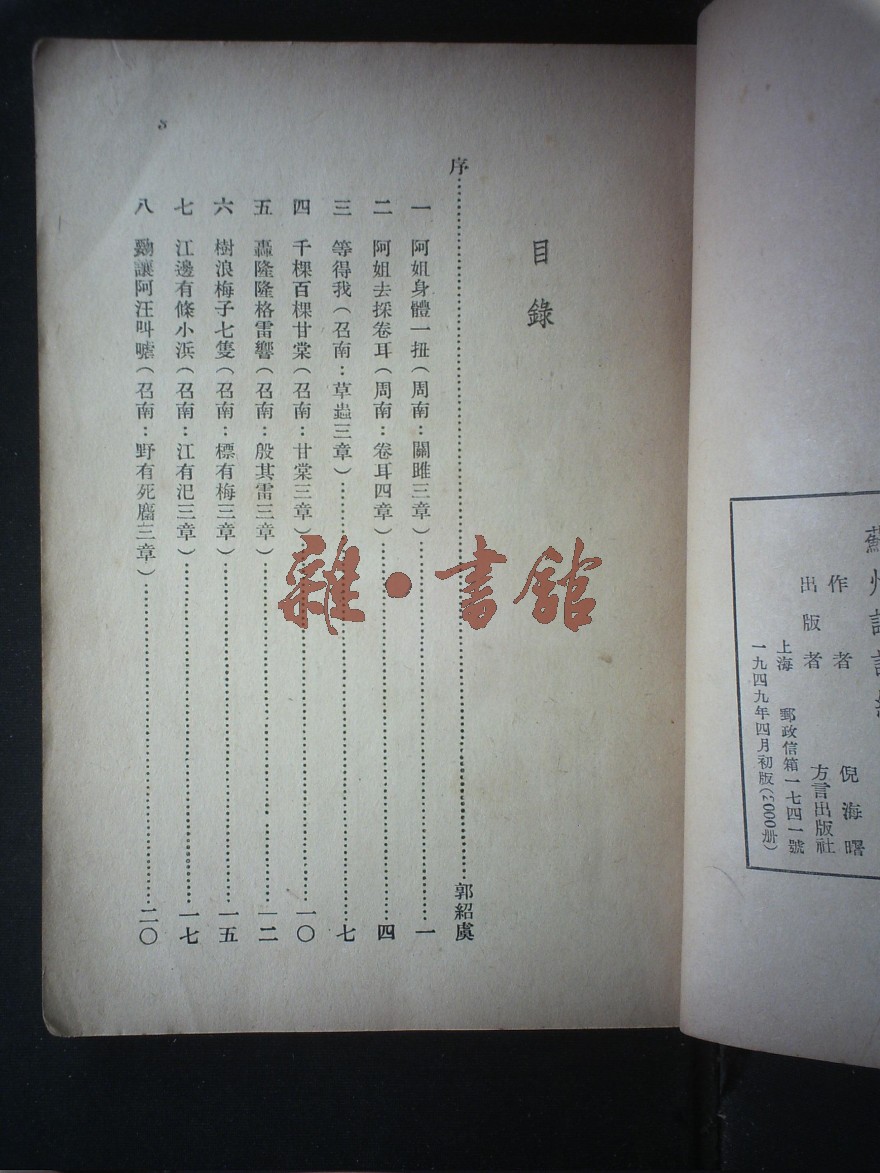 蘇州話詩經
作者 倪海曙
出版者 方言出版社
上海 郵政信箱一七四一號
一九四九年四月初版(2000册)
目錄
序……郭紹虞
一 阿姐身體一扭(周南:關雎三章)……一
二 阿姐去採卷耳(周南:卷耳四章)……四
三 等得我(召南:草蟲三章)……七
四 千棵百棵甘棠(召南:甘棠三章)……一〇
五 轟隆隆格雷響(召南:殷其雷三章)……一二
六 樹浪梅子七隻(召南:標有梅三章)……一五
七 江邊有條小浜(召南:江有汜三章)……一七
八 覅讓阿汪叫嗻(召南:野有死麕三章)……二〇
雜·書館